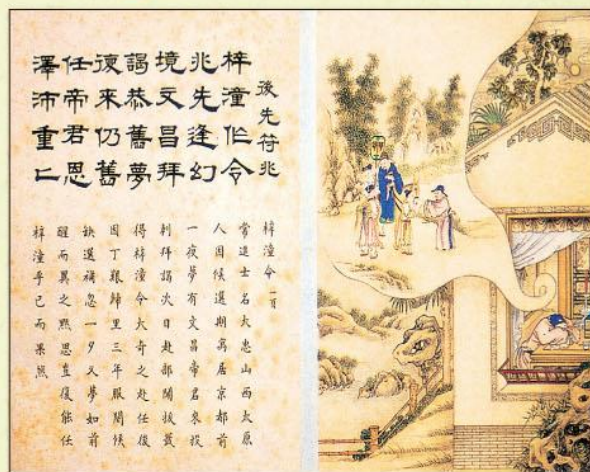 後先符兆
梓潼作令
兆先逢幻
境文昌拜
謁恭舊夢
復來仍舊
任帝君恩
澤沛重〻
梓潼令
常進士名大山西太原
人因候選期寓居京都前
一夜夢有文昌帝君來投
刺拜謁次日赴部拔
得梓潼令大奇之赴任後
因丁艱歸里三年服闋候
缺選補忽一夕又夢如前
醒而異之默思豈復能任
梓潼乎已而果然